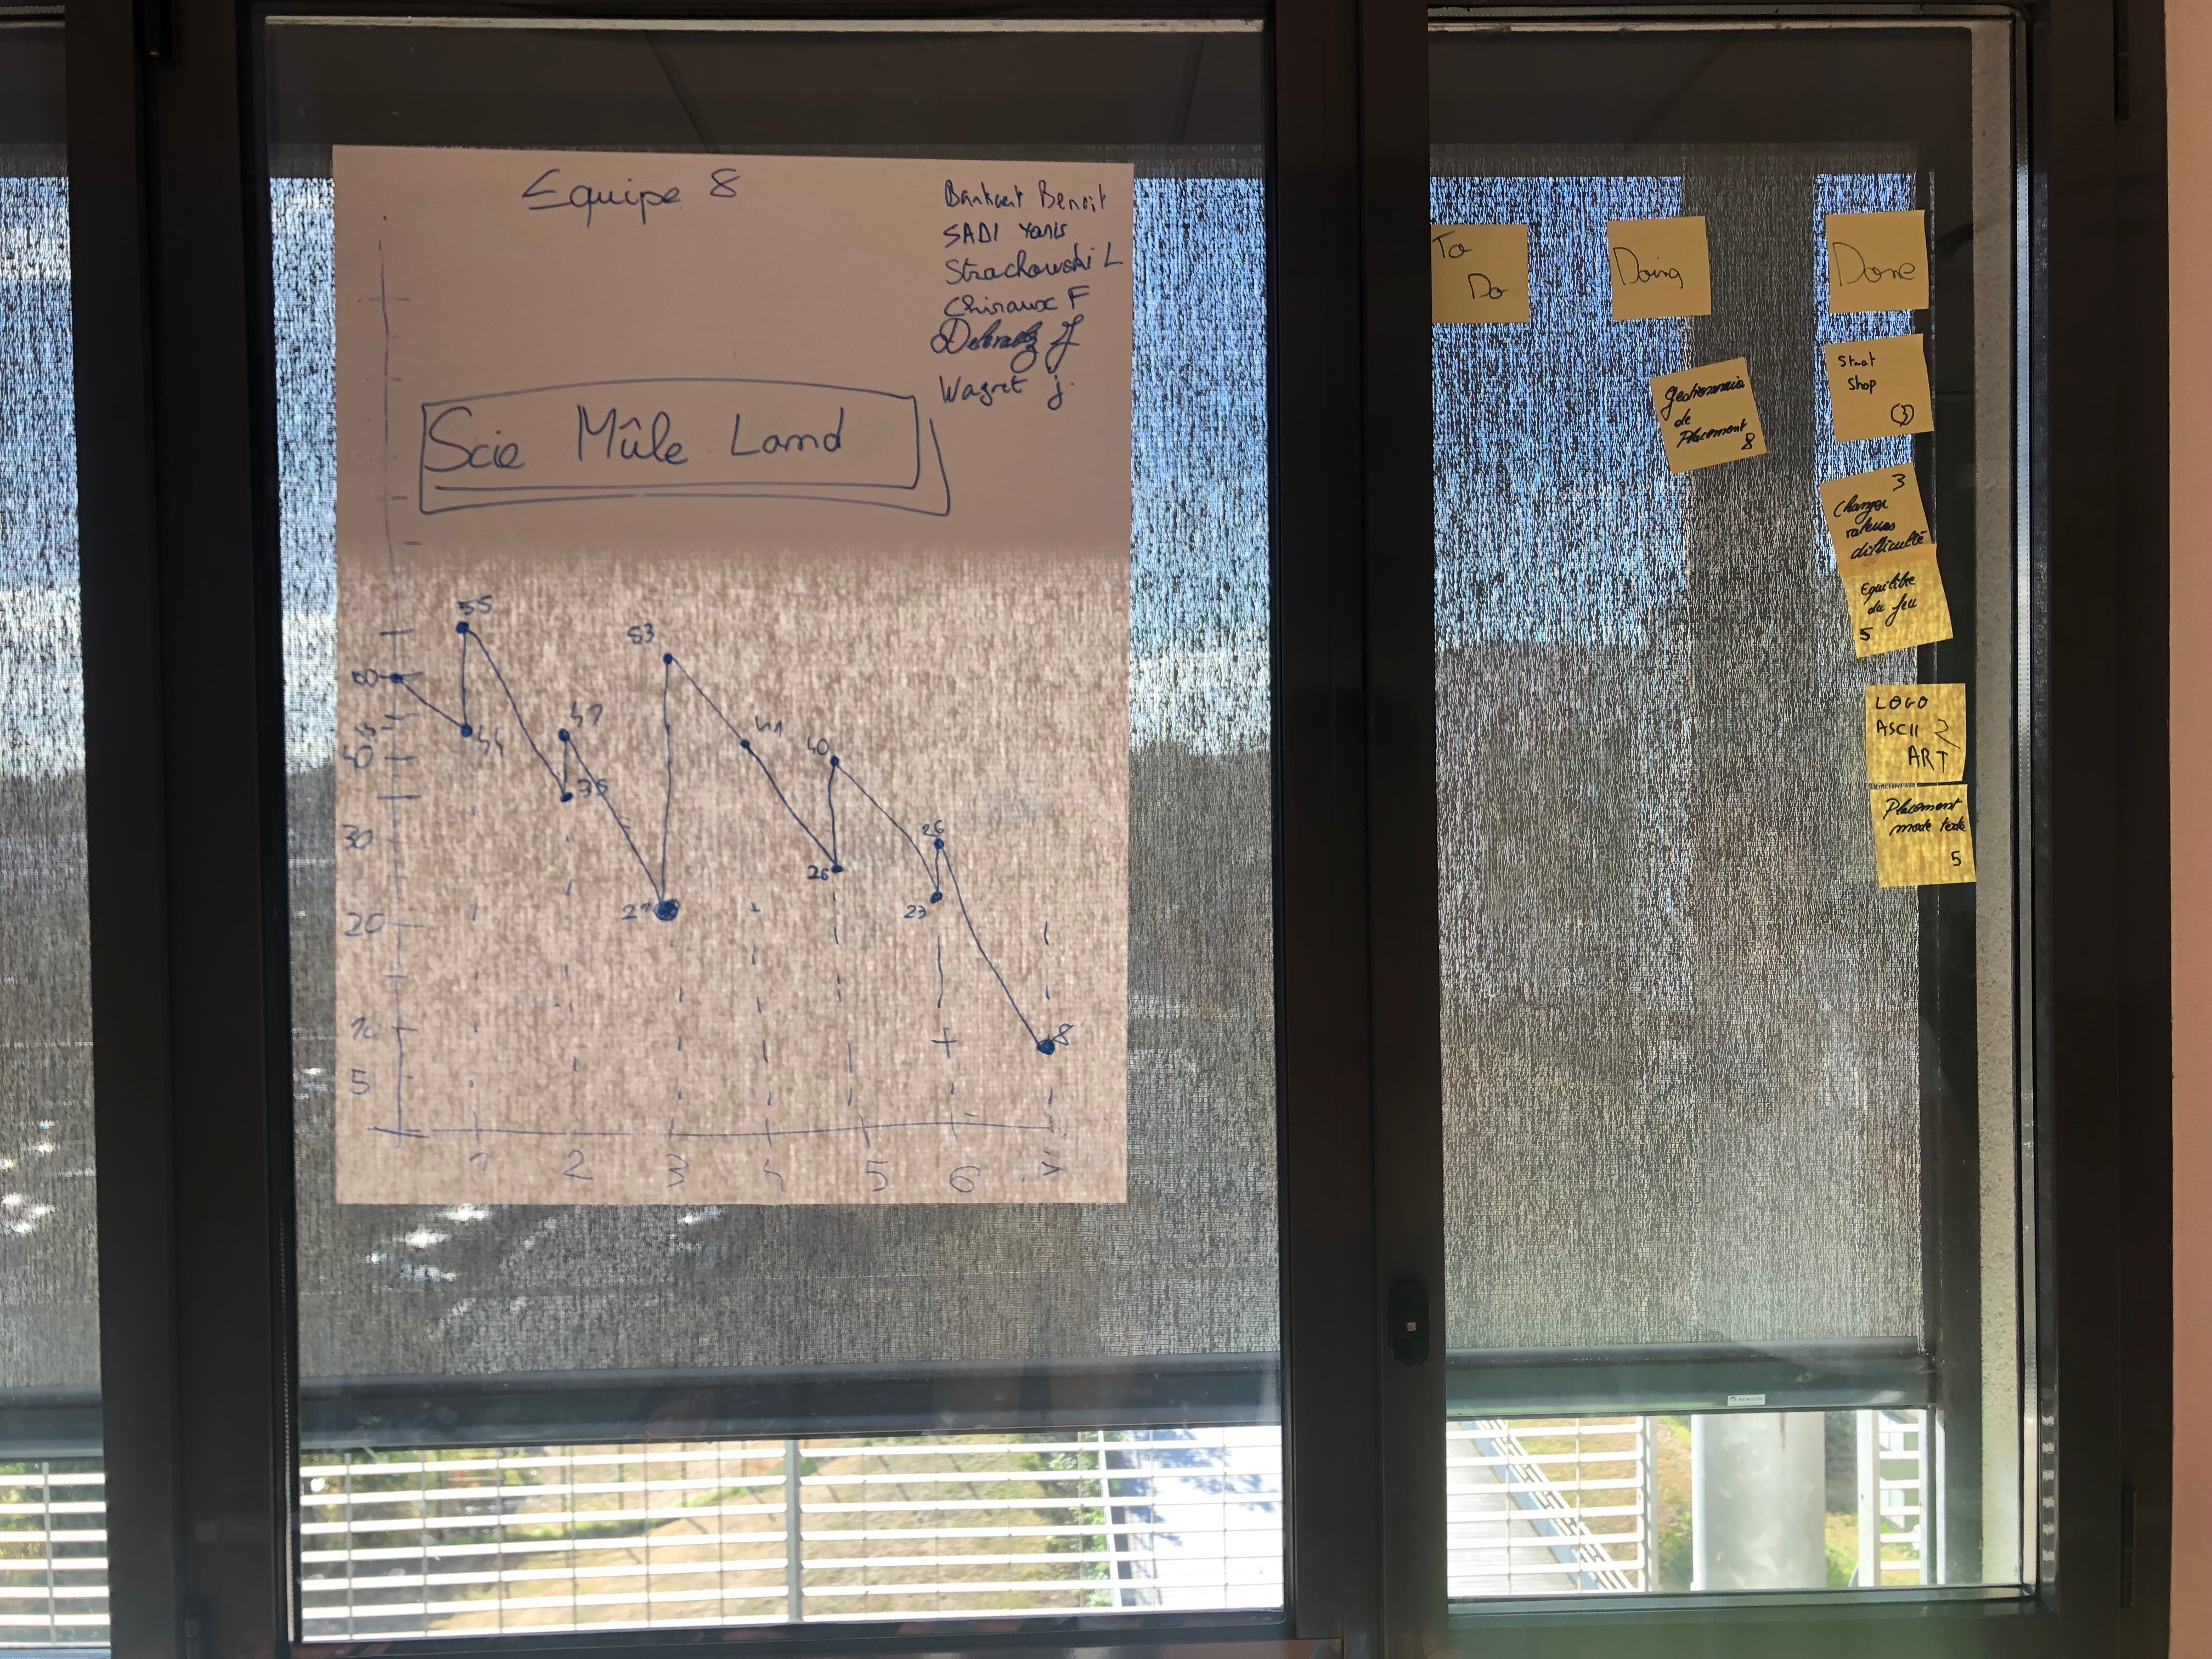 Equipe 8
Benoit
SADI Yanis
Strachowski L
F
Wagret j.
Scie Mûle Land
55
53
50
47
44
41
40
40
35
30
26
26
23
20
10
8
5
1 2 3 4 5 6 7
To
Do
Doing
Done
gestionnaire
de
Placement
8
Start
Shop
3
3
Changer
valeurs
difficulté
Equilibre
du jeu
5
LOGO
ASCII 2
ART
Placement
mode texte
5